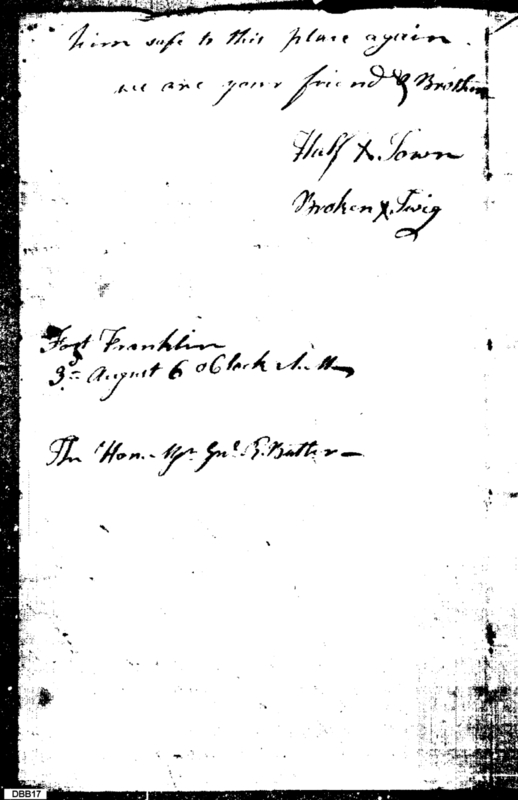 him safe to this place again.
we are your friend & Brothers
Half X Town
Broken X Twig
Fort Franklin
3d August 6 oClock
The Hon. Mjr Gnl R. Butler —
DBB17